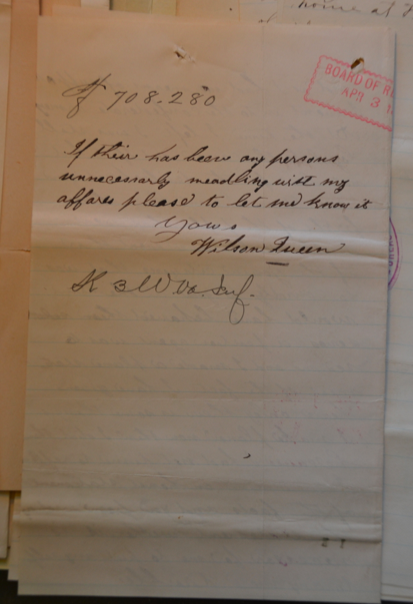 708.280
BOARD OF R
APR 3 1
If their has been any persons
unnecessarly meadling with my
affares please to let me know it
Yours
Wilson Queen
K 3 W. Va. Inf.